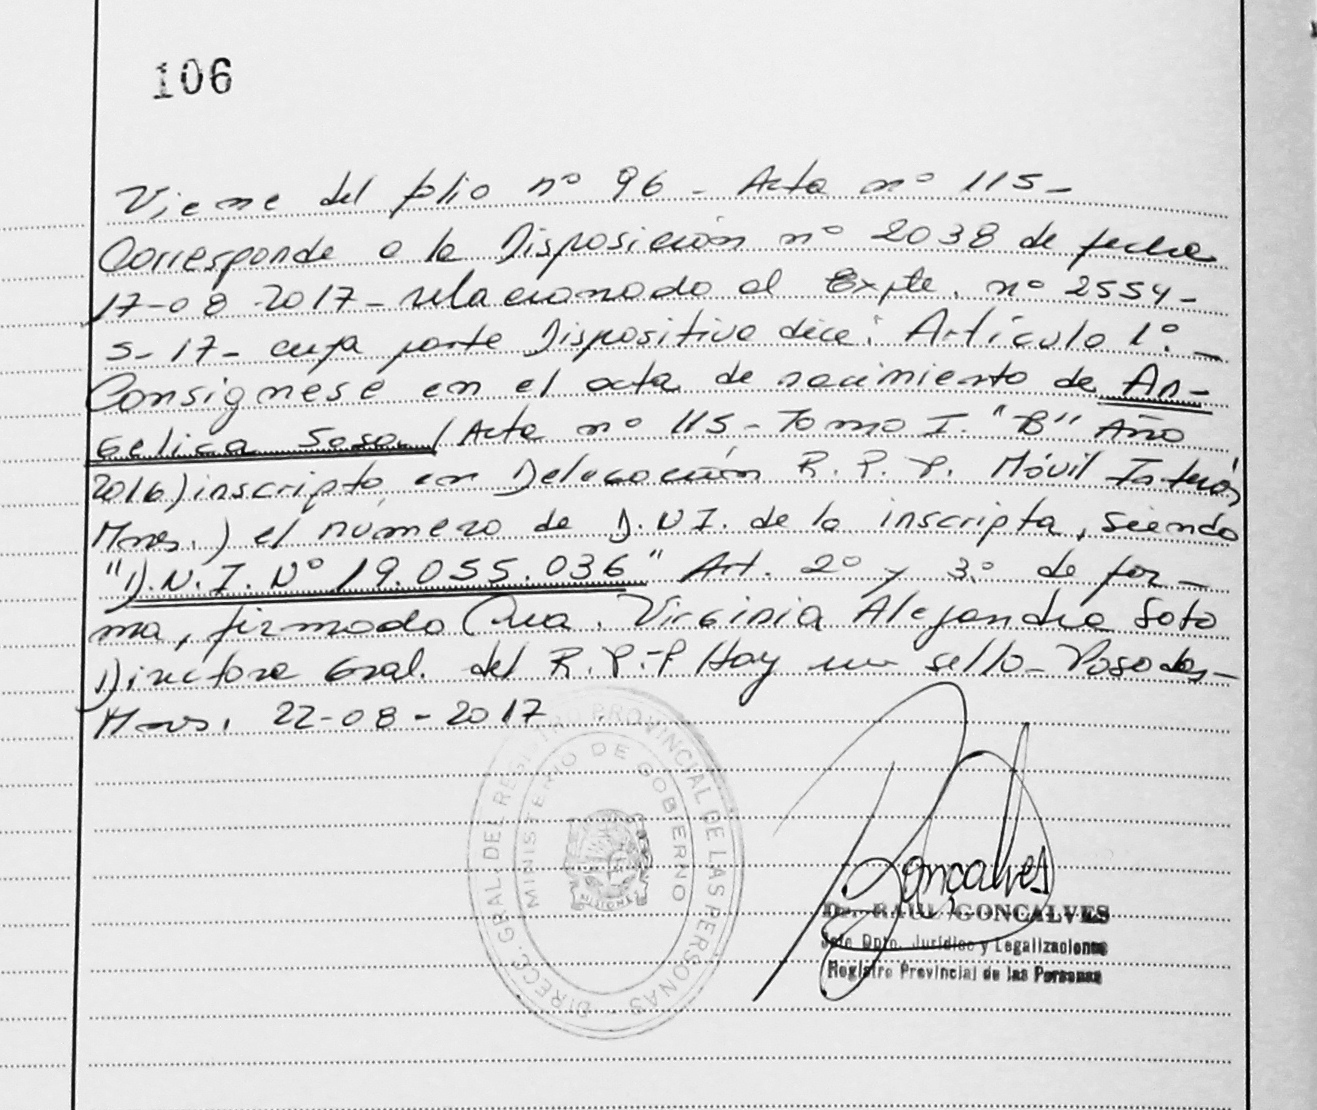 106
Viene del folio nº 96 - Acta nº 115 -
Corresponde a la Disposición nº 2038 de fecha
17-08-2017 - relacionado al Expte. nº 2554 -
S-17 - cuya parte Dispositiva dice: Artículo 1º. -
Consígnese en el acta de nacimiento de An-
gelica Sosa (Acta nº 115 - Tomo I. "B" Año
2016) inscripta en Delegación R. P. P. Móvil Interior,
Mnes.) el número de D.N.I. de la inscripta, siendo
"D.N.I. Nº 19.055.036" Art. 2º y 3.º de for-
ma, firmado Virginia Alejandra Soto
Directora Gral. del R.P.P Hay un sello - Posadas -
Mnes. 22-08-2017
DIRECC. GRAL. DEL REGISTRO PROVINCIAL DE LAS PERSONAS -
MINISTERIO DE GOBIERNO
MISIONES
Gonçalves
Dr. RAUL GONCALVES
Jefe Dpto. Jurídico y Legalizaciones
Registro Provincial de las Personas